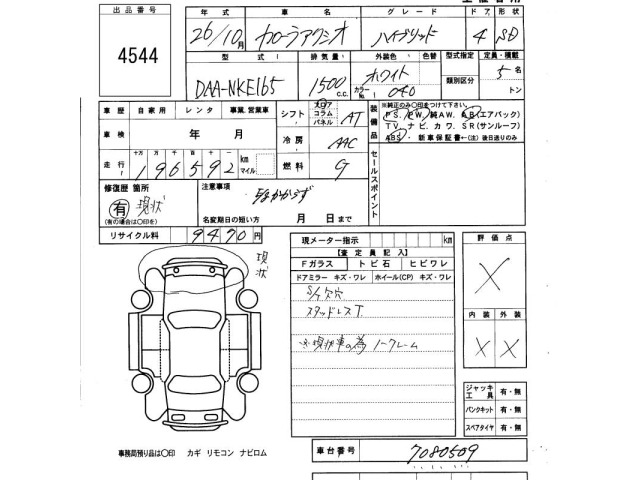 出品番号
4544
年式 車名 グレード ドア 形状
26/10月 カローラアクシオ ハイブリッド 4 SD
型式 排気量 外装色 色替 型式指定 定員・積載
DAA-NKE165 1500 c.c. ホワイト カラーNo. 040 類別区分 5名 トン
車歴 自家用 レンタ 事業,営業車
車検 年 月
走行 十万 万 千 百 十 一 km マイル
196592
シフト フロア コラム パネル AT
冷房 AAC
燃料 G
装備品
※純正のみ〇印をつけて下さい。
PS.PW.純AW.AB(エアバック)
TV.ナビ.カワ.SR(サンルーフ)
ABS.新車保証書←(注)後日送りのみ
セールスポイント
修復歴 箇所
有 現状
(有の場合は〇印を)
注意事項
名変期日の短い方 月 日まで
リサイクル料 9490円
現状
現メーター指示 km
【査定員記入】
Fガラス トビ石 ヒビワレ
ドアミラー キズ・ワレ ホイール(CP) キズ・ワレ
S/T 欠穴
スタッドレスT.
※現状車の為 ノークレーム
評価点
X
内装 外装
X X
ジャッキ工具 有・無
パンクキット 有・無
スペアタイヤ 有・無
事務局預り品は〇印 カギ リモコン ナビロム
車台番号 7080509